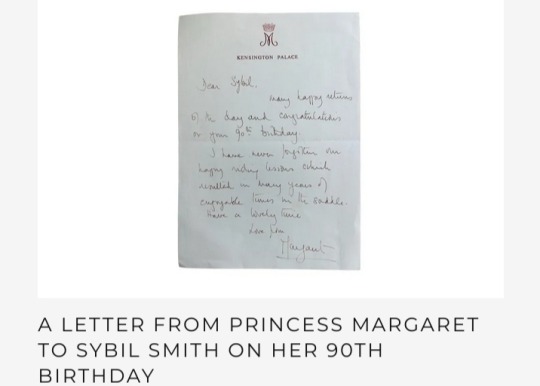 M
KENSINGTON PALACE
Dear Sybil,
many happy returns
of the day and congratulations
on your 90th birthday.
I have never forgotten our
happy riding lessons which
resulted in many years of
enjoyable times in the saddle.
Have a lovely time
Love from
Margaret
A LETTER FROM PRINCESS MARGARET
TO SYBIL SMITH ON HER 90TH
BIRTHDAY